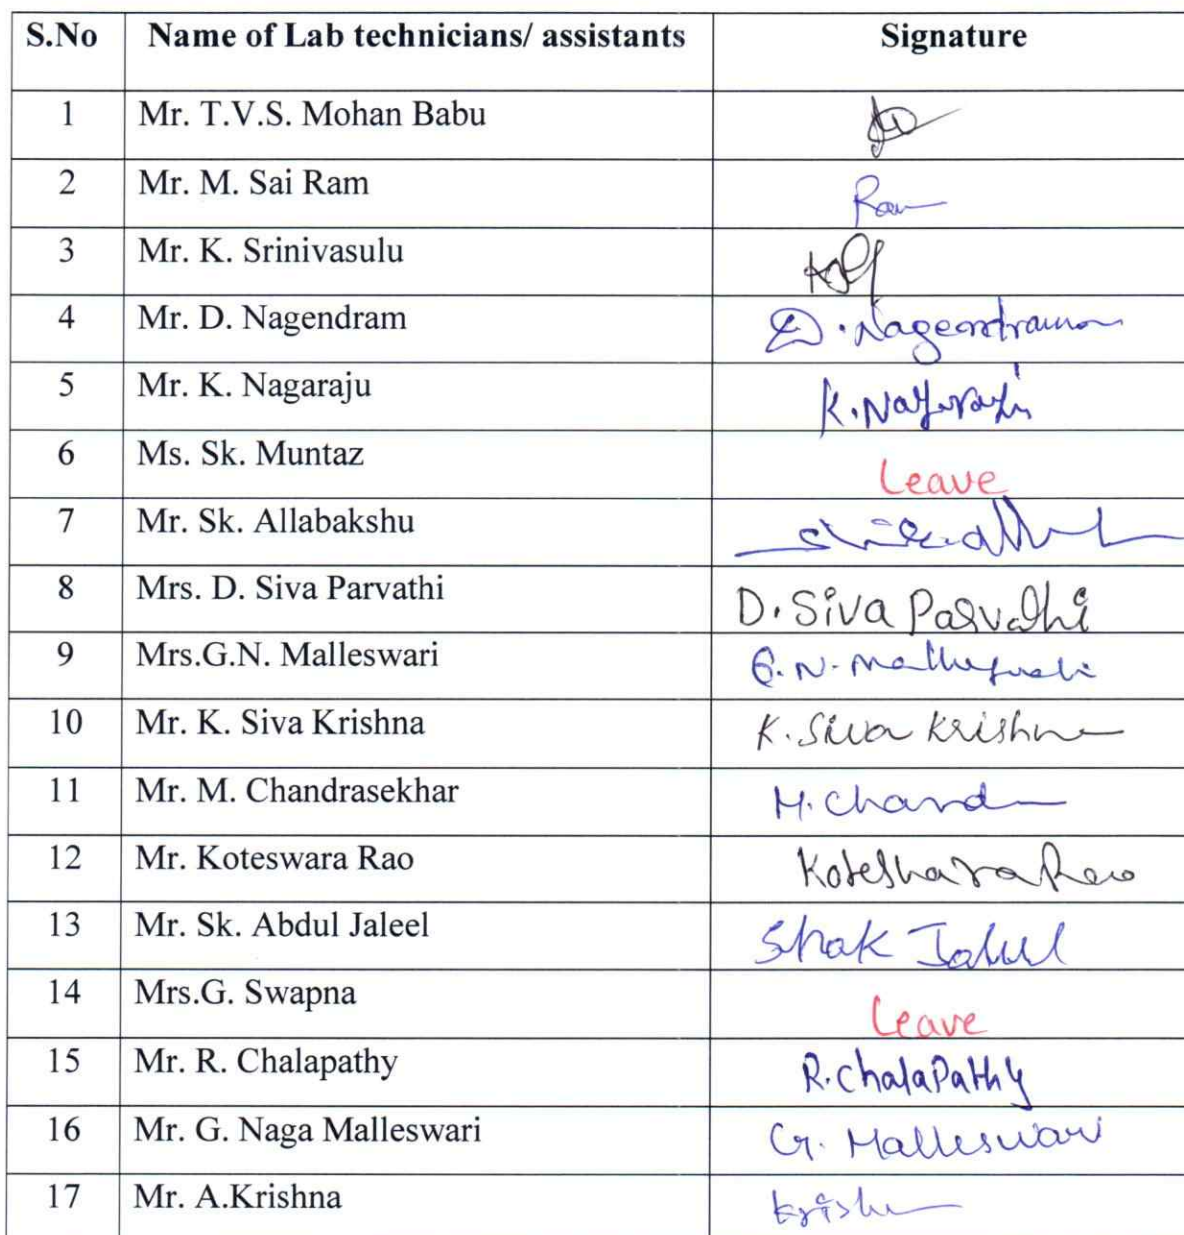 S.No Name of Lab technicians/ assistants Signature
1 Mr. T.V.S. Mohan Babu
2 Mr. M. Sai Ram Ram
3 Mr. K. Srinivasulu
4 Mr. D. Nagendram D. Nagendram
5 Mr. K. Nagaraju K. Nagaraju
6 Ms. Sk. Muntaz Leave
7 Mr. Sk. Allabakshu
8 Mrs. D. Siva Parvathi D. Siva Parvathi
9 Mrs.G.N. Malleswari G. N. Malleswari
10 Mr. K. Siva Krishna K. Siva Krishna
11 Mr. M. Chandrasekhar M. Chand
12 Mr. Koteswara Rao Koteshwara Rao
13 Mr. Sk. Abdul Jaleel Shak Jaleel
14 Mrs.G. Swapna Leave
15 Mr. R. Chalapathy R. ChalaPathy
16 Mr. G. Naga Malleswari G. Malleswari
17 Mr. A.Krishna Krishn